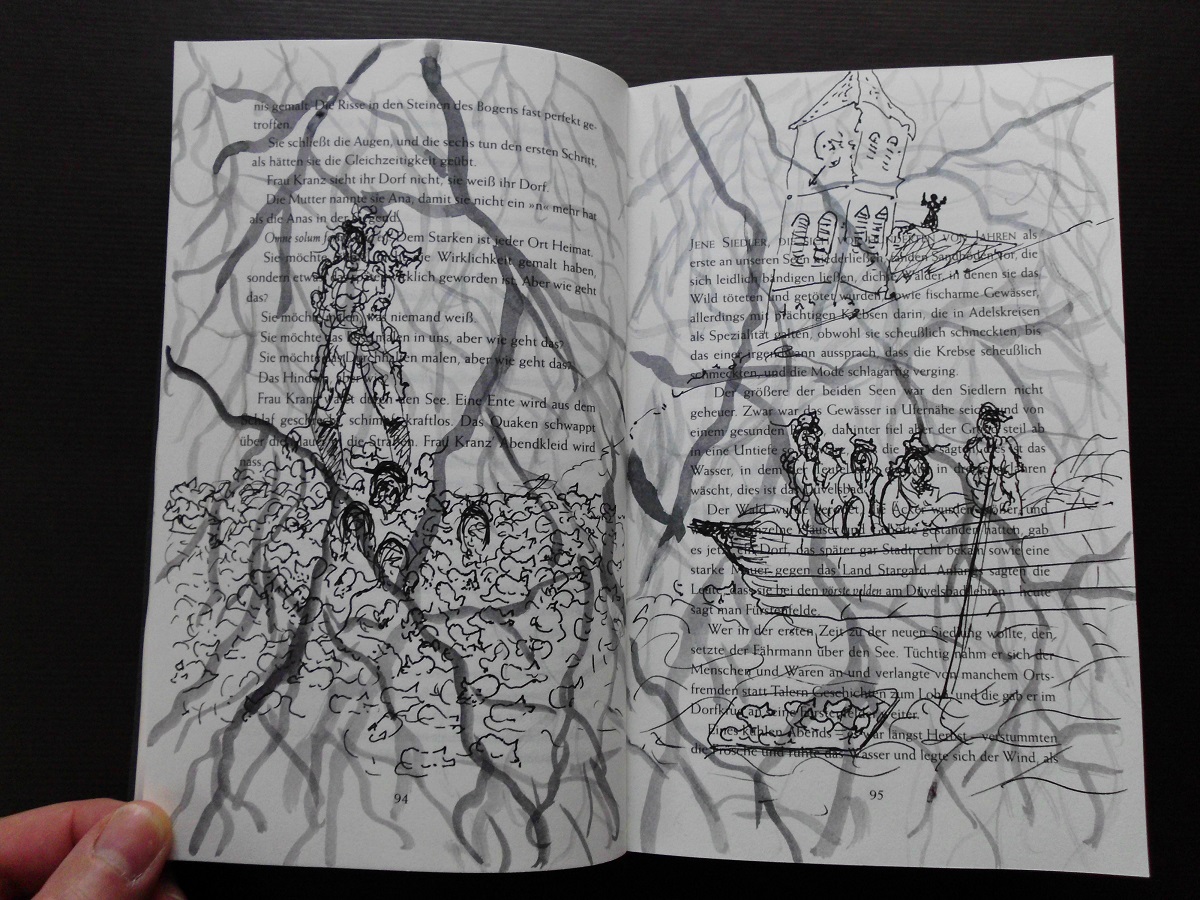 nis gemalt. Die Risse in den Steinen des Bogens fast perfekt ge-
troffen.
Sie schließt die Augen, und die sechs tun den ersten Schritt,
als hätten sie die Gleichzeitigkeit geübt.
Frau Kranz sieht ihr Dorf nicht, sie weiß ihr Dorf.
Die Mutter nannte sie Ana, damit sie nicht ein »n« mehr hat
als die Anas in der Gegend.
Omne solum Dem Starken ist jeder Ort Heimat.
Sie möchte Wirklichkeit gemalt haben,
sondern wirklich geworden ist. Aber wie geht
das?
Sie möchte malen, was niemand weiß.
Sie möchte das malen in uns, aber wie geht das?
Sie möchte das Durchhalten malen, aber wie geht das?
Das Hindern, aber wie
Frau Kranz watet den See. Eine Ente wird aus dem
Schlaf schimpft kraftlos. Das Quaken schwappt
über die Mauer in die Straßen. Frau Kranz' Abendkleid wird
nass.
94
JENE SIEDLER, DIE SICH VOR HUNDERTEN VON JAHREN als
erste an unseren Seen niederließen, fanden Sandboden vor, die
sich leidlich bändigen ließen, dichte Wälder, in denen sie das
Wild töteten und getötet wurden sowie fischarme Gewässer,
allerdings mit prächtigen Krebsen darin, die in Adelskreisen
als Spezialität galten, obwohl sie scheußlich schmeckten, bis
das einer irgendwann aussprach, dass die Krebse scheußlich
schmeckten, und die Mode schlagartig verging.
Der größere der beiden Seen war den Siedlern nicht
geheuer. Zwar war das Gewässer in Ufernähe seicht und von
einem gesunden dahinter fiel aber der Grund steil ab
in eine Untiefe die sagten, dies ist das
Wasser, in dem der Teufel in drei Jahren
wäscht, dies ist das Düvelsbad.
Der Wald wurde die Äcker wurden und
einzelne Häuser und Gehöfte gestanden hatten, gab
es jetzt ein Dorf, das später gar Stadtrecht bekam sowie eine
starke Mauer gegen das Land Stargard. Anfangs sagten die
Leute, dass sie bei den vorste velden am Düvelsbad lebten – heute
sagt man Fürstenfelde.
Wer in der ersten Zeit zu der neuen Siedlung wollte, den
setzte der Fährmann über den See. Tüchtig nahm er sich der
Menschen und Waren an und verlangte von manchem Orts-
fremden statt Talern Geschichten zum Lohn, und die gab er im
Dorfkrug an seine Fürstenfelder weiter.
Eines kühlen Abends – es war längst Herbst – verstummten
die Frösche und ruhte das Wasser und legte sich der Wind, als
95